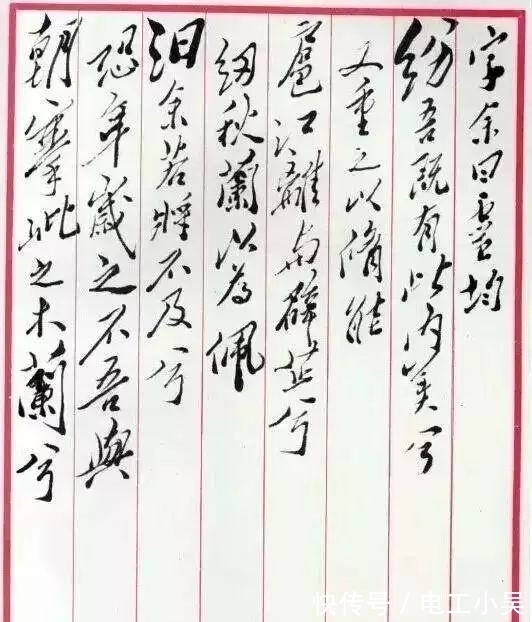 字余曰灵均
纷吾既有此内美兮
又重之以脩能
扈江離与辟芷兮
纫秋蘭以为佩
汩余若将不及兮
恐年歲之不吾與
朝搴阰之木蘭兮
快传号/电工小吴